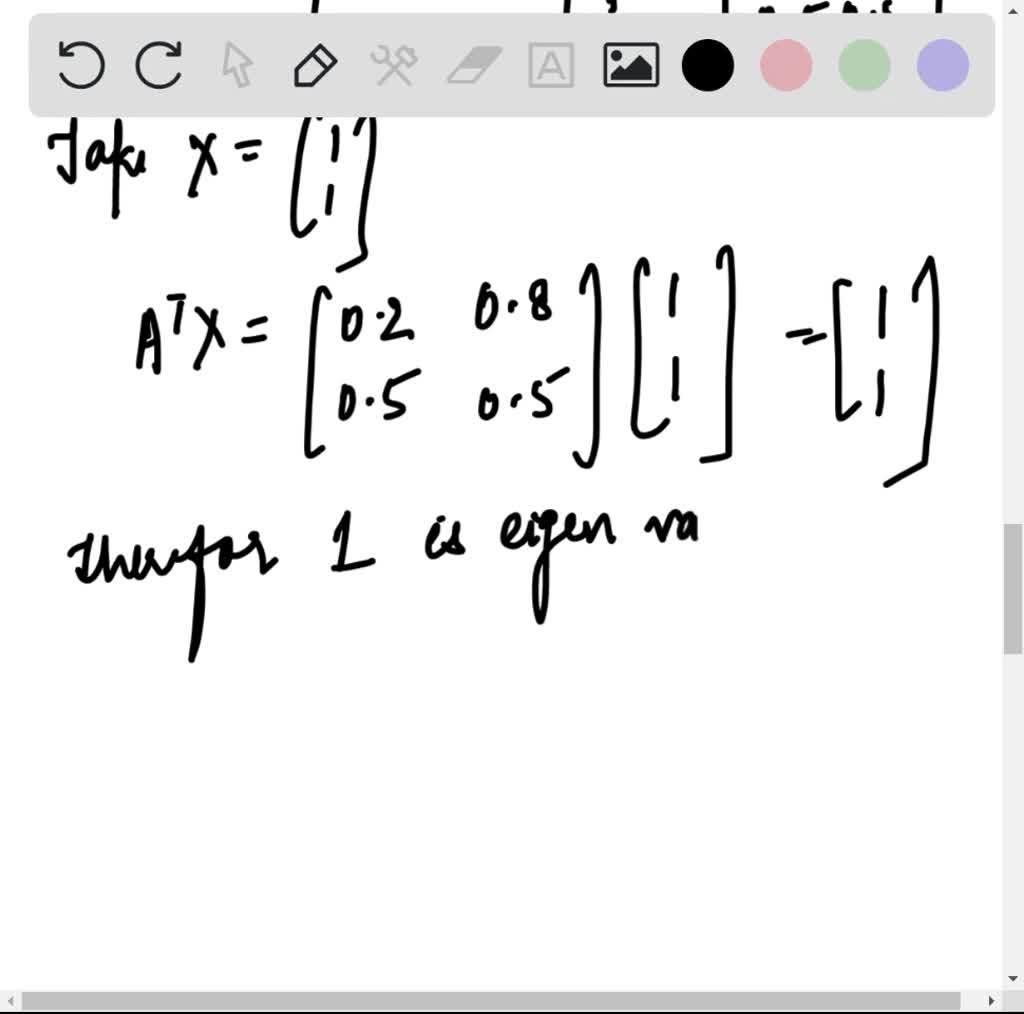 Take X = [1 1]
A^T X = [0.2 0.8 0.5 0.5] [1 1] = [1 1]
therefor 1 is eigen va